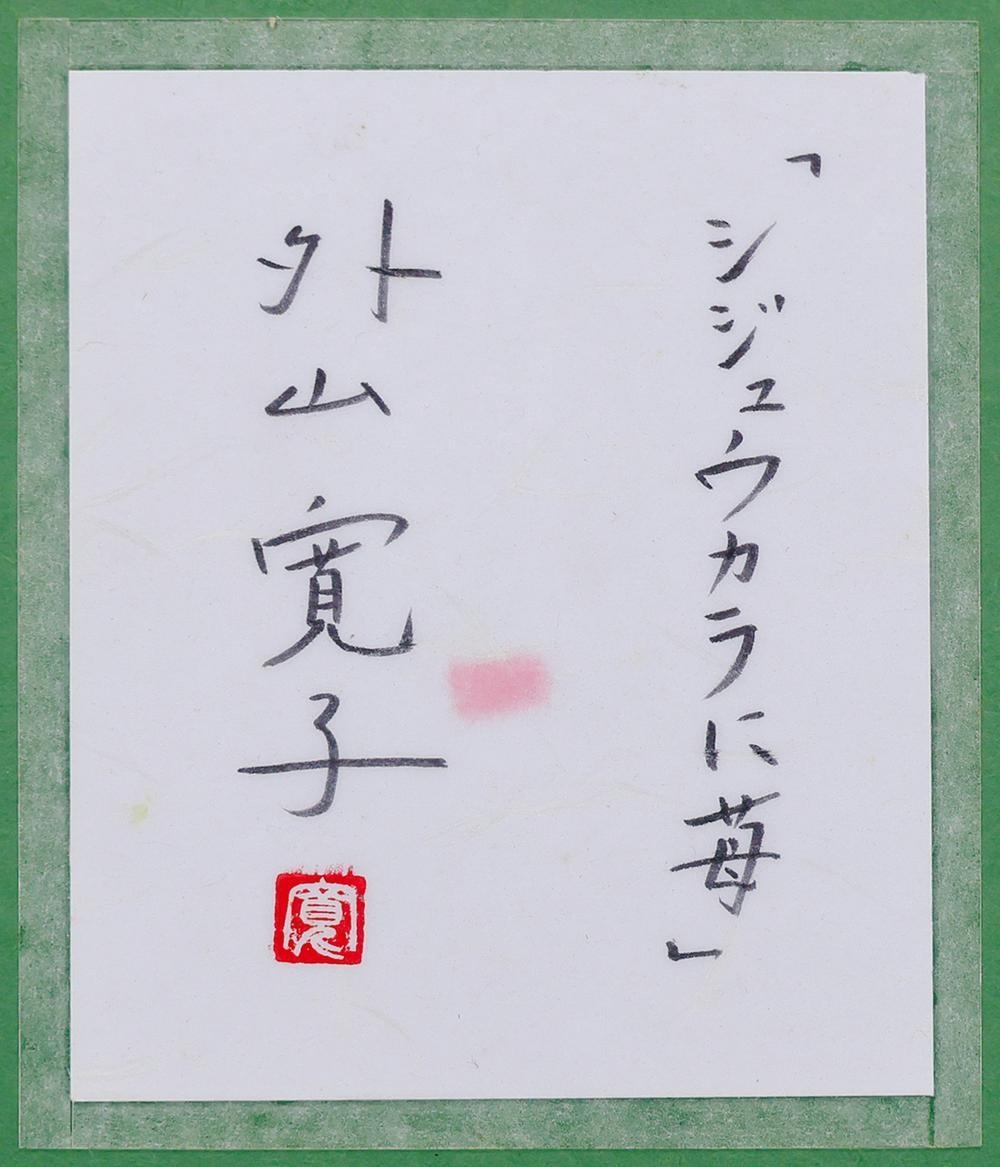 「シジュウカラに苺」
外山寛子
寛